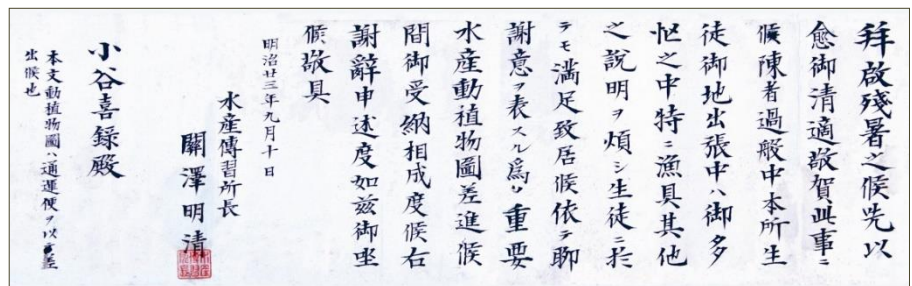 拜啟殘暑之候先以
愈御清適敬賀此事ニ
候陳者過般中本所生
徒御地出張中ハ御多
忙之中特ニ漁具其他
之說明ヲ煩シ生徒ニ於
テモ滿足致居候依テ聊
謝意ヲ表スル爲メ重要
水産動植物圖差進候
間御受納相成度候右
謝辭申述度如茲御座
候敬具
明治廿三年九月十日
水産傳習所長
關澤明清
小谷喜録殿
本文動植物圖ハ通運便ヲ以テ差
出候也